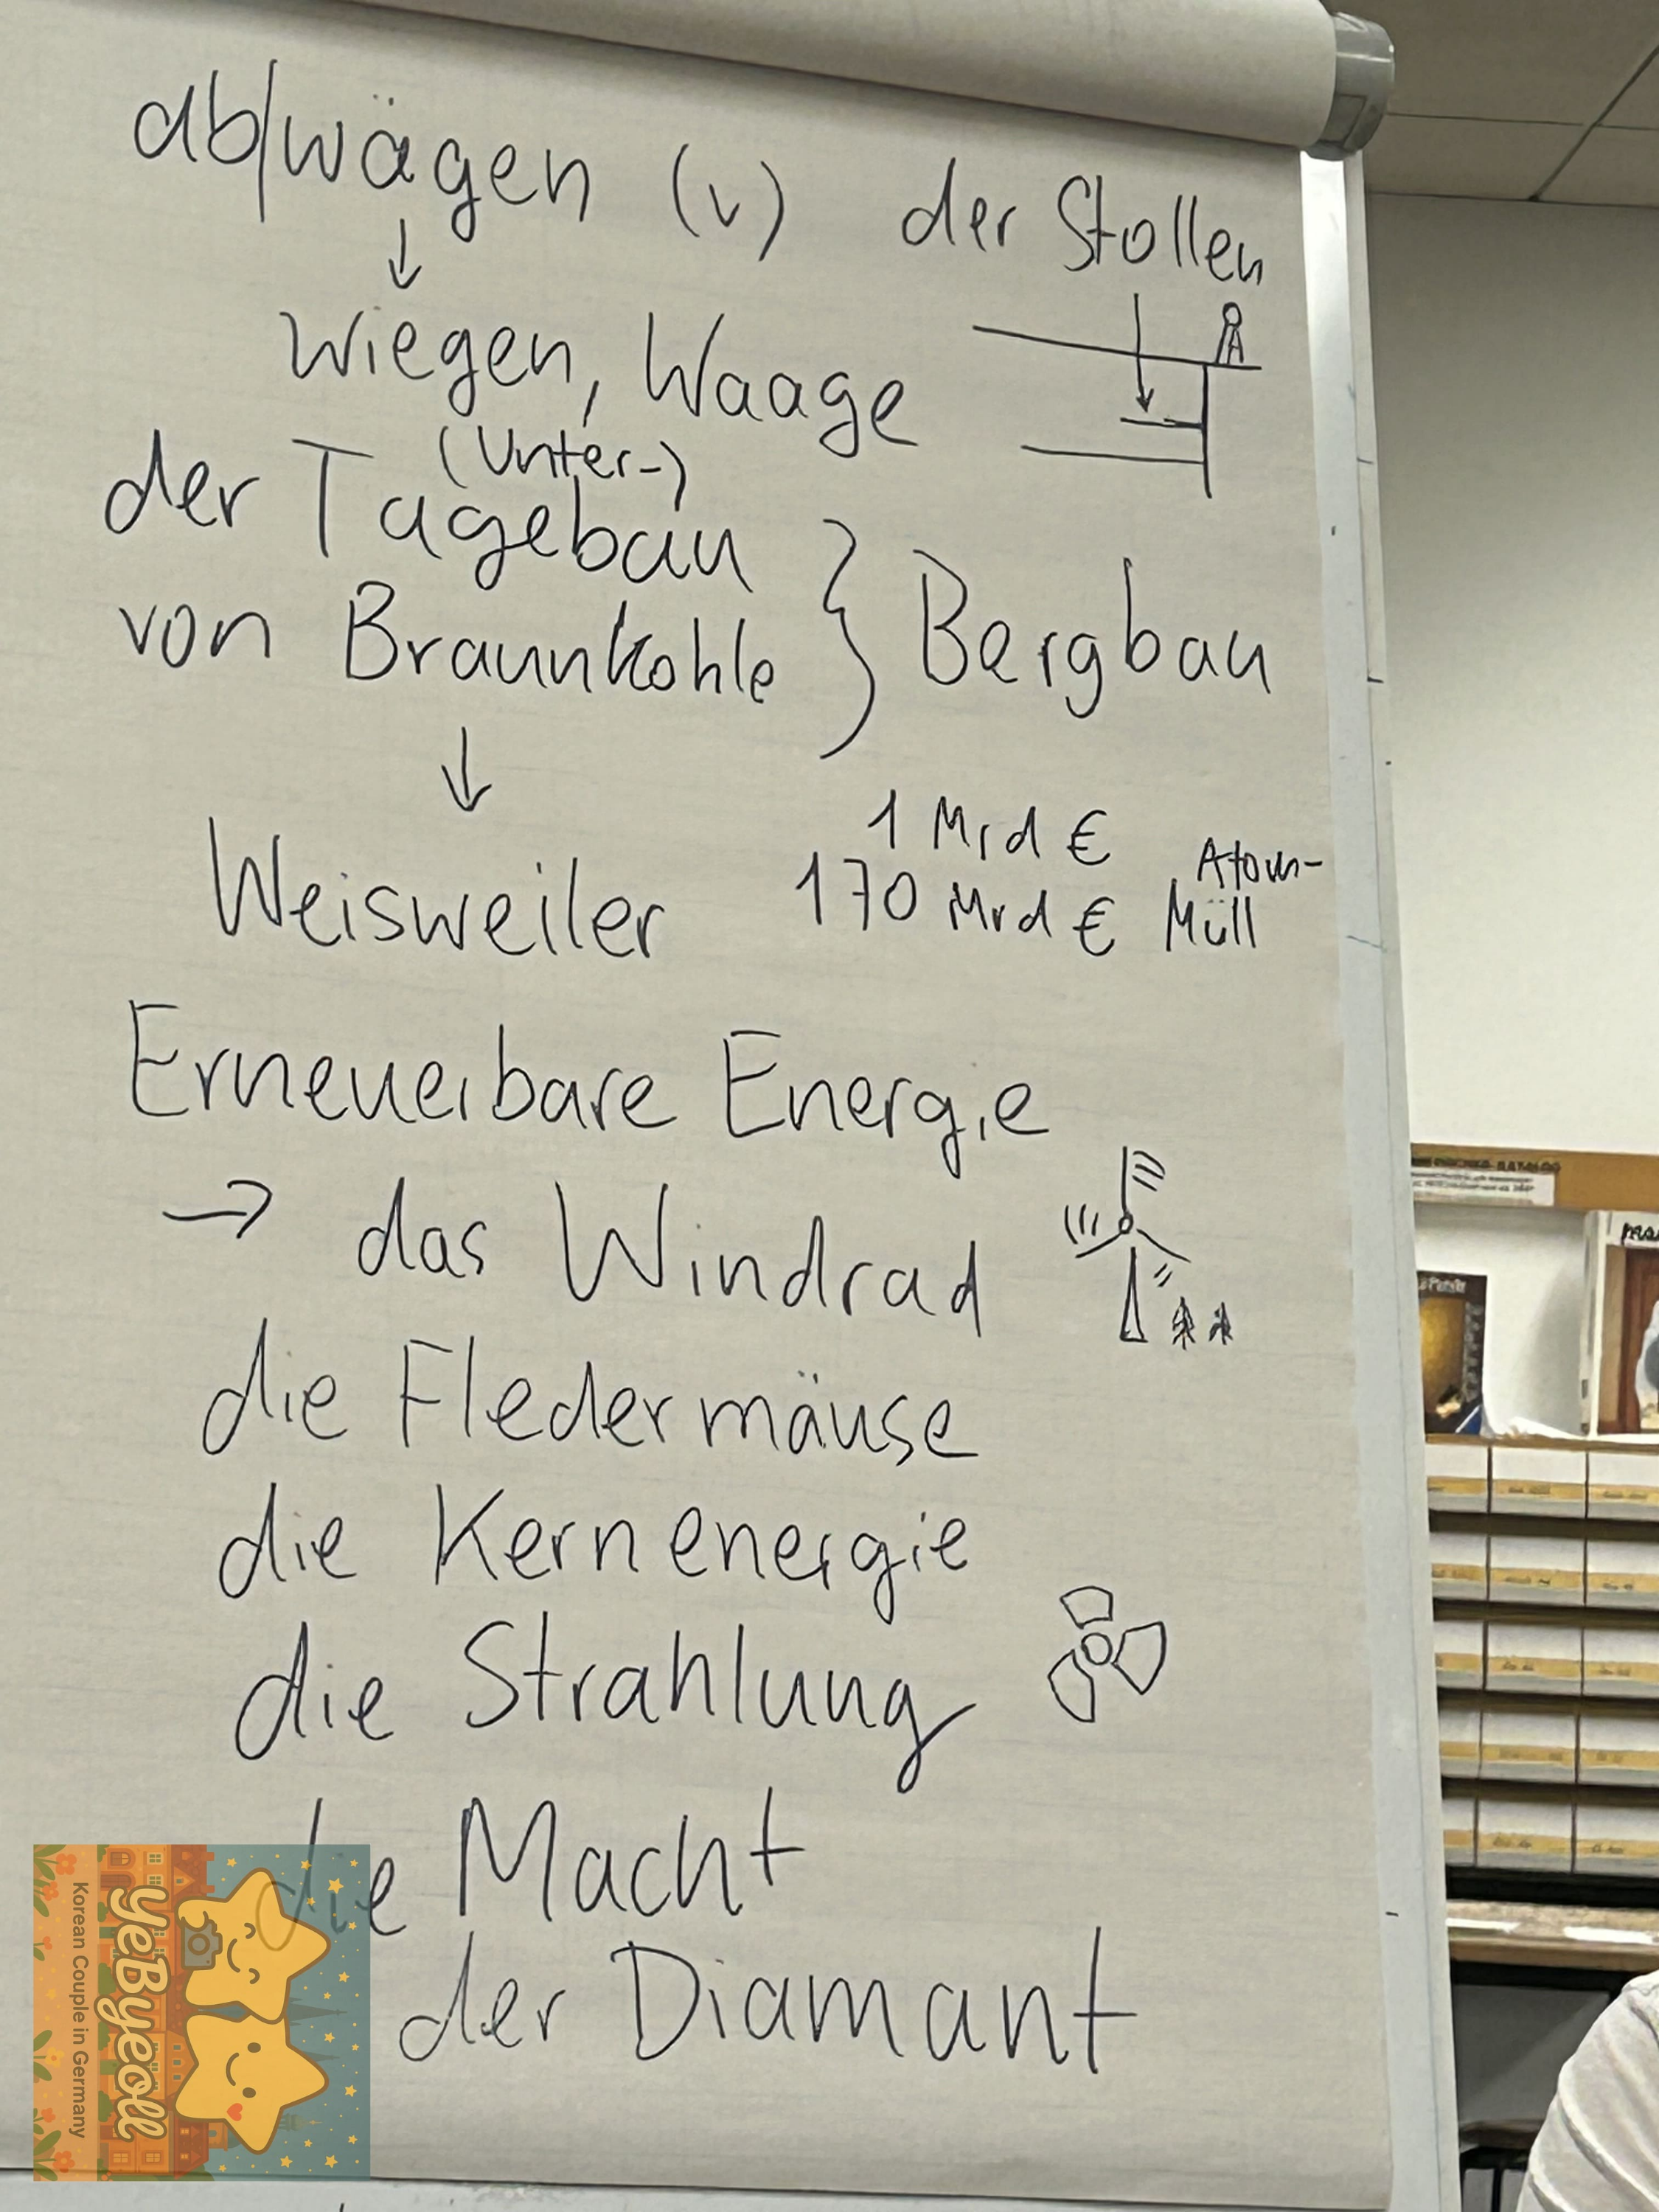 ab/wägen (v)
der Stollen
↓
Wiegen, Waage
(Unter-)
der Tagebau
von Braunkohle } Bergbau
↓
Weisweiler
1 Mrd €
170 Mrd € Atom-
Müll
Erneuerbare Energie
→ das Windrad
die Fledermäuse
die Kernenergie
die Strahlung
die Macht
der Diamant
YeByeoll
Korean Couple in Germany